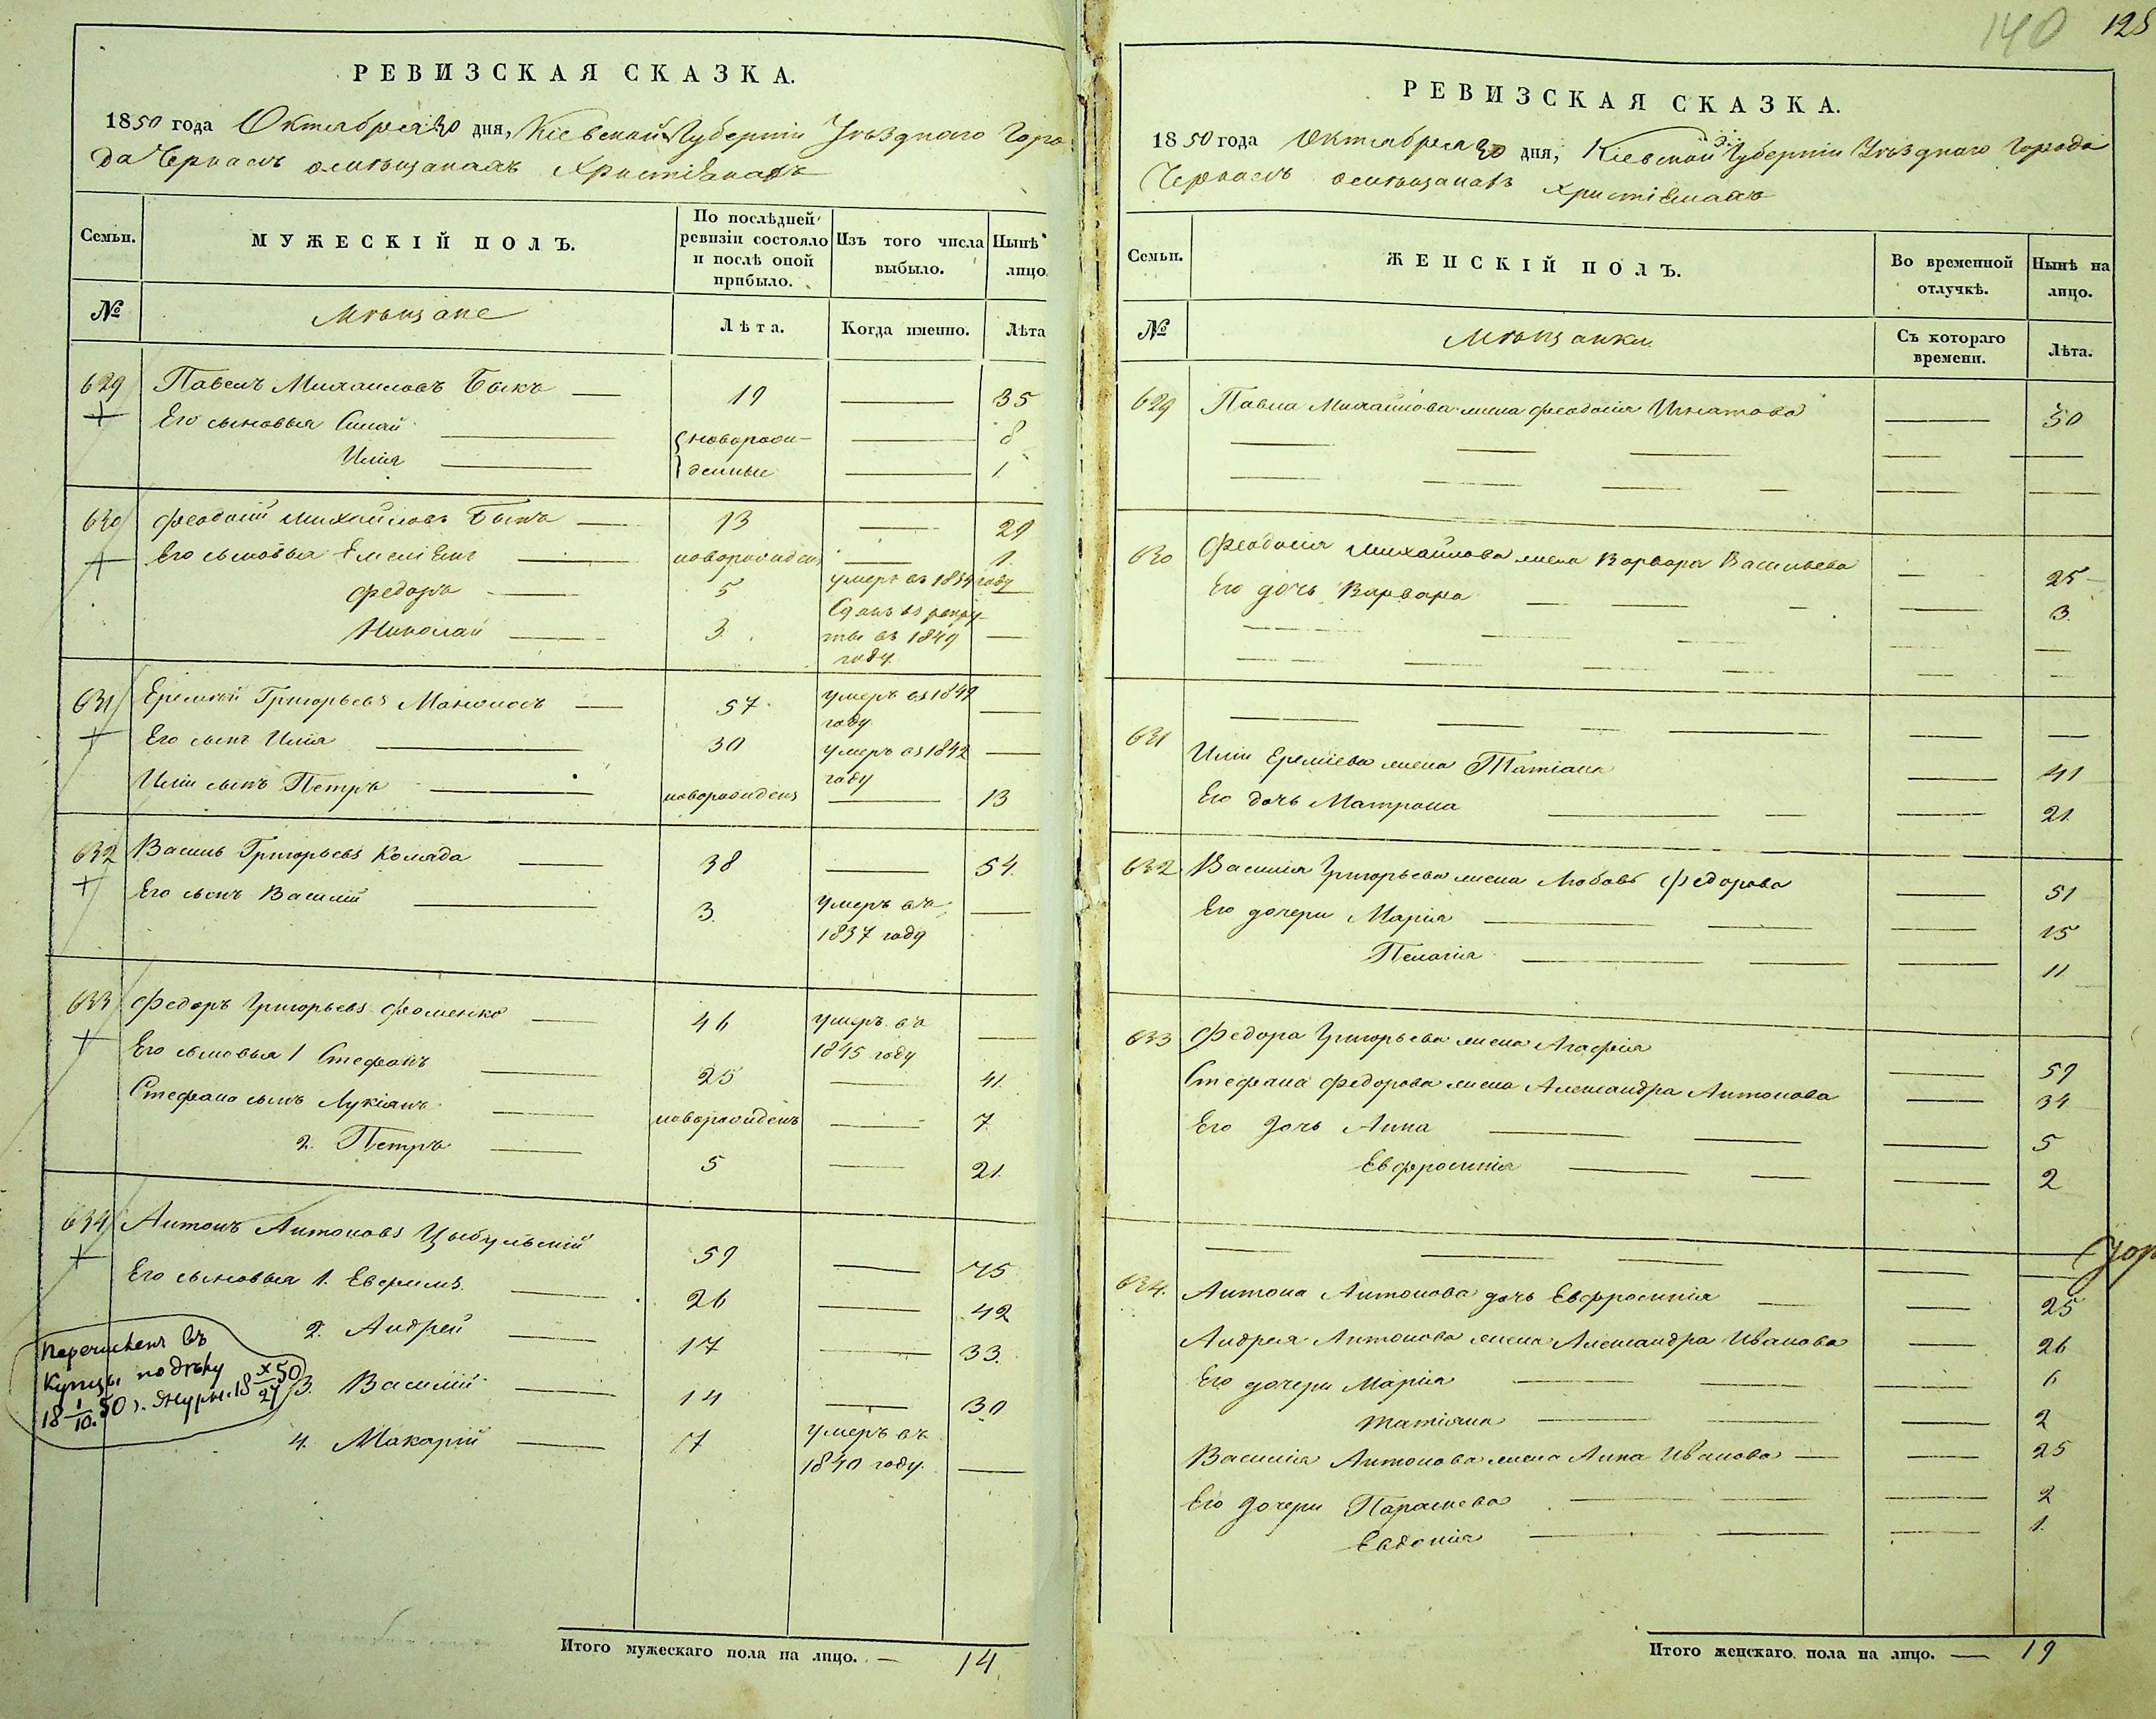 140 125
РЕВИЗСКАЯ СКАЗКА.
1850 года Октября 30 дня, Кіевской Губерніи Уѣзднаго Горо
да Черкасъ о мѣщанахъ Христіанахъ
Семьи.
МУЖЕСКІЙ ПОЛЪ.
По послѣдней ревизіи состояло и послѣ оной прибыло.
Изъ того числа выбыло.
Нынѣ лицо.
№
Мѣщане
Лѣта.
Когда именно.
Лѣта
629 Павелъ Михаиловъ Быкъ — 19 — 35
Его сыновья Симай — новорож- — 8
Илія — денные — 1.
630 Феодосій Михайловъ Быкъ — 13 — 29
Его сыновья Емеліянъ — новорожденъ — 1.
Федоръ — 5 умеръ въ 1834 году —
Николай — 3. Сданъ въ рекру-
ты въ 1849 —
году.
631 Еремѣй Григорьевъ — 57 умеръ въ 1849 —
году.
Его сынъ Илія — 30 умеръ въ 1842 —
году
Иліи сынъ Петръ — новорожденъ — 13
632 Василь Григорьевъ Коляда — 38 — 54.
Его сынъ Василій — 3. умеръ въ —
1837 году
633 Федоръ Григорьевъ Фоменко — 46 умеръ въ —
1845 году
Его сыновья 1 Стефанъ — 25 — 41.
Стефана сынъ Лукіянъ — новорожденъ — 7
2. Петръ — 5 — 21.
634 Антонъ Антоновъ Цыбульскій 59 — 75
Его сыновья 1. Евфимъ. — 26 — 42
2. Андрей — 17 — 33.
3. Василій — 14 — 30
4. Макарій — 7 умеръ въ
1840 году. —
Перечисленъ въ
Купцы по дѣлу
18 1/10. 50 г. Журн. 18 X/27 50
Итого мужескаго пола на лицо. — 14.
РЕВИЗСКАЯ СКАЗКА.
1850 года Октября 30 дня, Кіевской Губерніи Уѣзднаго Города
Черкасъ о мѣщанахъ Христіанахъ
Семьи.
ЖЕНСКІЙ ПОЛЪ.
Во временной отлучкѣ.
Нынѣ на лицо.
№
Мѣщанки.
Съ котораго времени.
Лѣта.
629 Павла Михайлова жена Феодосія Игнатова — 30
630 Феодосія Михайлова жена Варвара Васильева — 25
Его дочь Варвара — 3.
631 Иліи Ереміева жена Татіана — 41
Его дочь Матрона — 21.
632 Василія Григорьева жена Любовь Федорова — 51
Его дочери Марія — 15
Пелагія — 11
633 Федора Григорьева жена Агафія — 59
Стефана Федорова жена Александра Антонова — 34
Его дочь Анна — 5
Евфросинія — 2
634. Антона Антонова дочь Евфросинія — 25
Андрея Антонова жена Александра Иванова — 26
Его дочери Марія — 6
Татіяна — 2
Василія Антонова жена Анна Иванова — 25
Его дочери Параскева — 2
Евдокія — 1.
Итого женскаго пола на лицо. — 19